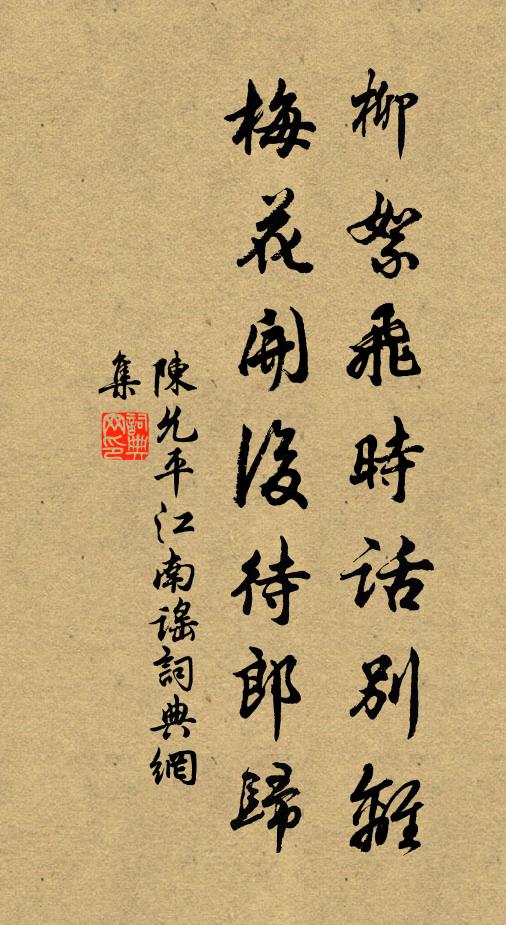 柳絮飛時話別離
梅花開後待郎歸
陳允平江南謠詞典網
集
詞典網印